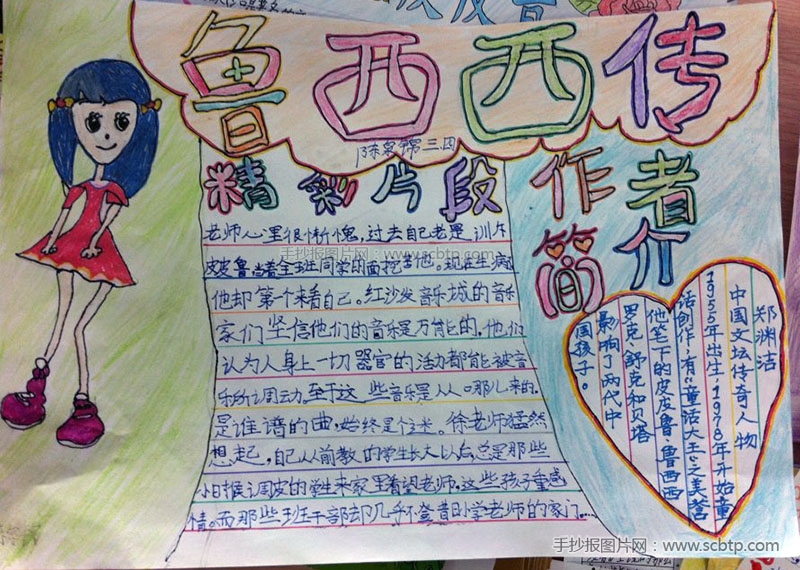 鲁西西传
三四
精彩片段
老师心里很惭愧,过去自己老是训斥
皮皮鲁,当着全班同学的面挖苦他。现在生病
他却第一个来看自己。红沙发音乐城的音乐
家们坚信他们的音乐是万能的,他们
认为人身上一切器官的活动都能被音
乐所调动。至于这些音乐是从哪儿来的
是谁谱的曲,始终是个迷。徐老师猛然
想起,自己从前教的学生长大以后,总是那些
小时候调皮的学生来家里看望老师。这些孩子重感
情。而那些班干部却几乎不登昔日学老师的家门....
作者
简介
郑渊洁
中国文坛传奇人物
1955年出生·1978年开始童
话创作·有:童话大王之美誉
他笔下的皮皮鲁 鲁西西
罗克·舒克和贝塔
影响了两代中
国孩子。
手抄报图片网:www.scbtp.com
手抄报图片网:www.scbtp.com